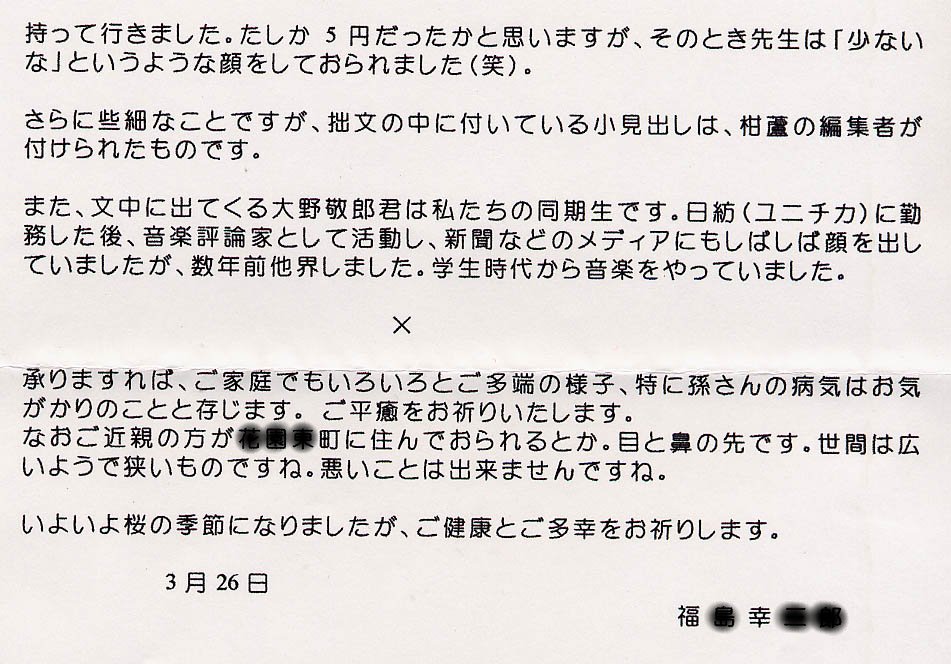 持って行きました。たしか 5 円だったかと思いますが、そのとき先生は「少ない
な」というような顔をしておられました(笑)。
さらに些細なことですが、拙文の中に付いている小見出しは、柑蘆の編集者が
付けられたものです。
また、文中に出てくる大野敬郎君は私たちの同期生です。日紡(ユニチカ)に勤
務した後、音楽評論家として活動し、新聞などのメディアにもしばしば顔を出し
ていましたが、数年前他界しました。学生時代から音楽をやっていました。
×
承りますれば、ご家庭でもいろいろとご多端の様子、特に孫さんの病気はお気
がかりのことと存じます。 ご平癒をお祈りいたします。
なおご近親の方が町に住んでおられるとか。目と鼻の先です。世間は広
いようで狭いものですね。悪いことは出来ませんですね。
いよいよ桜の季節になりましたが、ご健康とご多幸をお祈りします。
3 月 26 日
福 幸